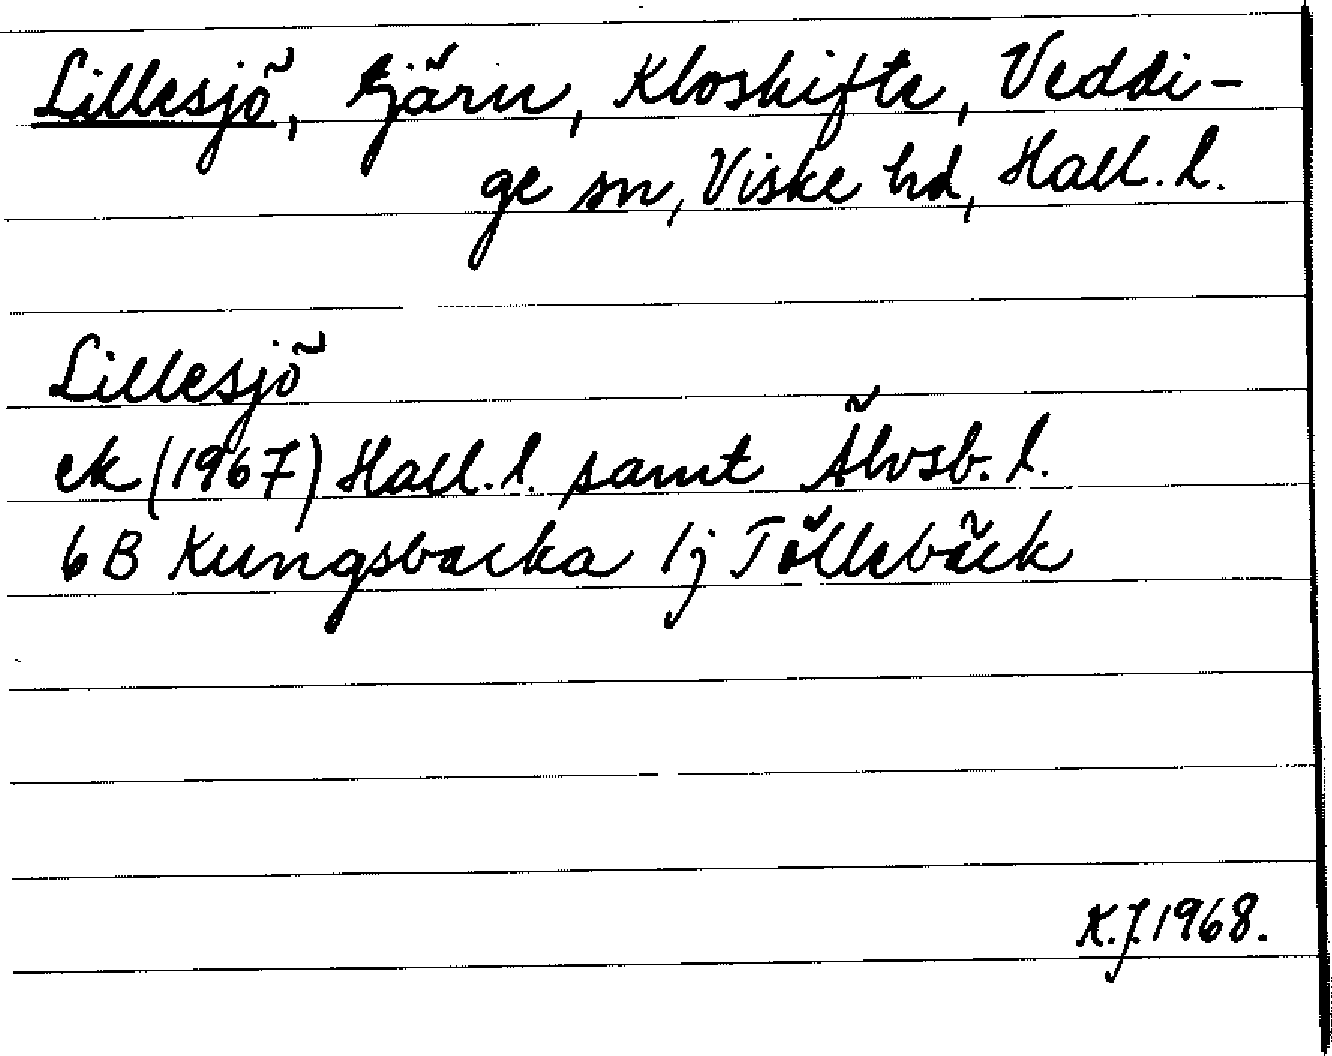 Lillesjö, tjärn, Kloskifte, Veddi-
ge sn, Viske hd, Hall. l.
Lillesjö
ek (1967) Hall. l. samt Älvsb. l.
6B Kungsbacka 1j Töllebäck
K.J. 1968.